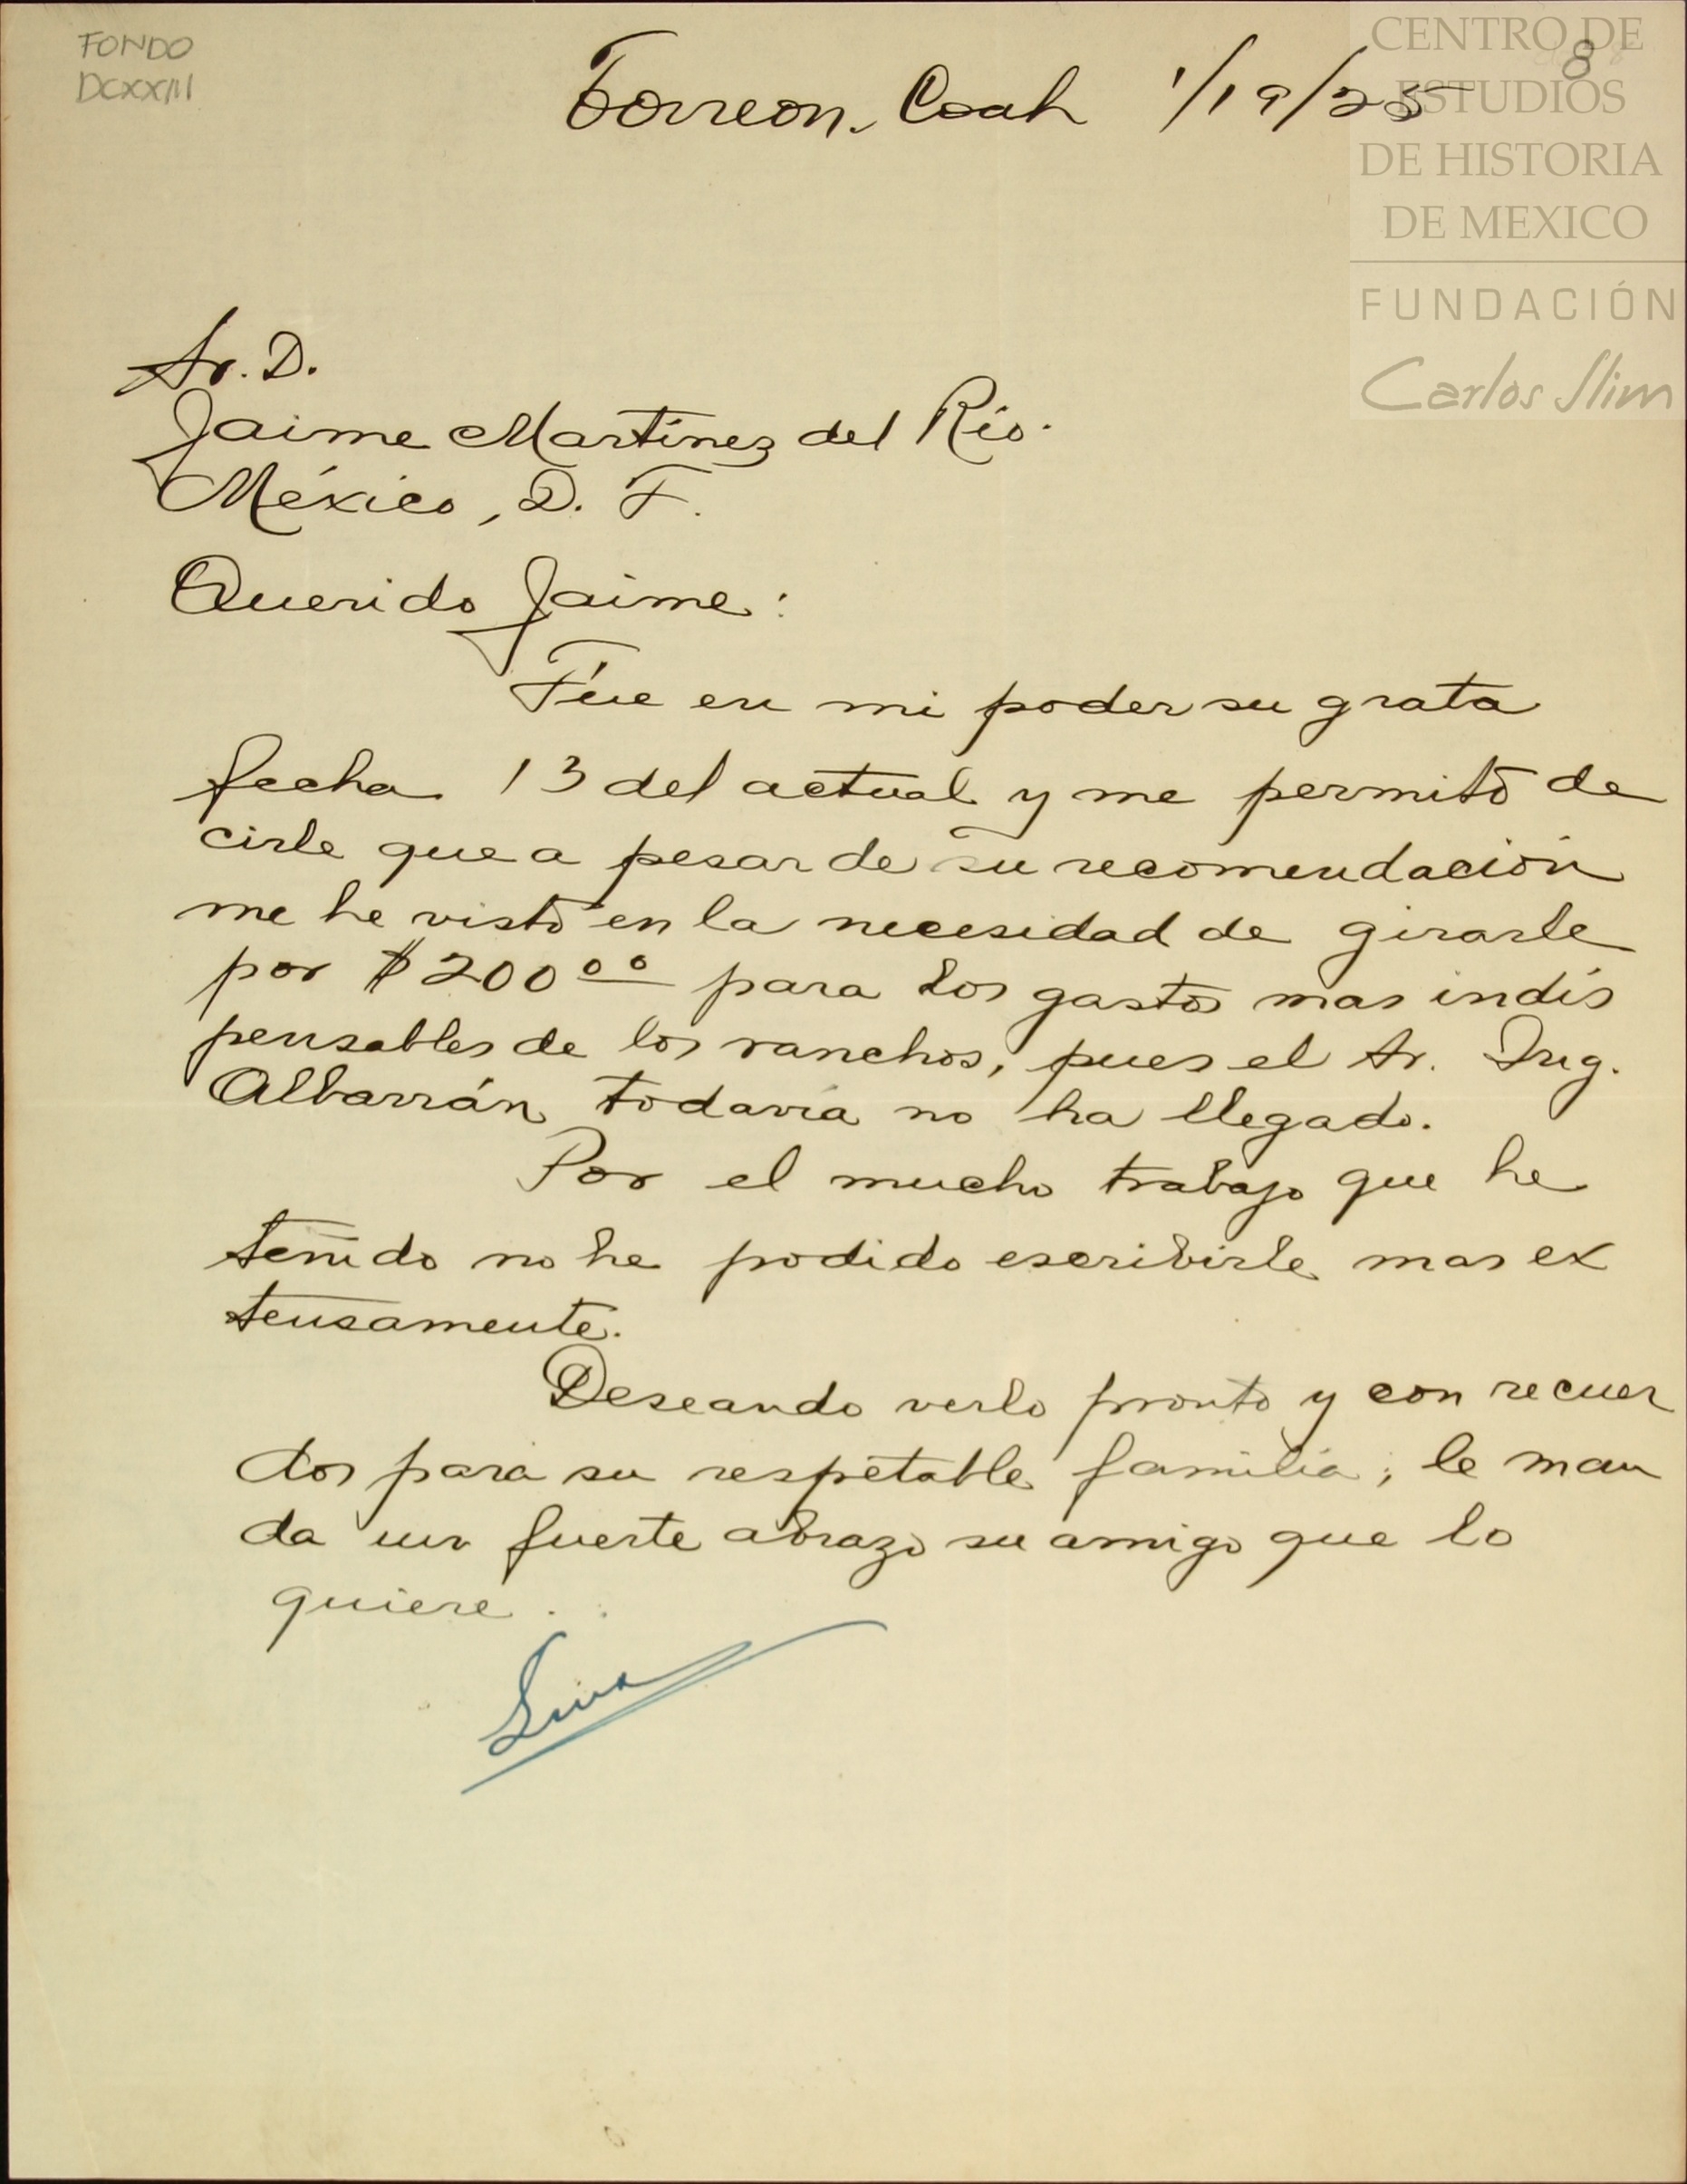 FONDO
DCXXIII
8
CENTRO DE
ESTUDIOS
DE HISTORIA
DE MEXICO
FUNDACIÓN
Carlos Slim
Torreon. Coah 1/19/25
Sr. D.
Jaime Martínez del Río.
México, D. F.
Querido Jaime:
Fúe en mi poder su grata
fecha 13 del actual y me permito de
cirle que a pesar de su recomendación
me he visto en la necesidad de girarle
por $200.00 para los gastos mas indis
pensables de los ranchos, pues el Sr. Ing.
Albarrán todavía no ha llegado.
Por el mucho trabajo que he
tenido no he podido escribirle mas ex
tensamente.
Deseando verlo pronto y con recuer
dos para su respetable familia, le man
da un fuerte abrazo su amigo que lo
quiere.